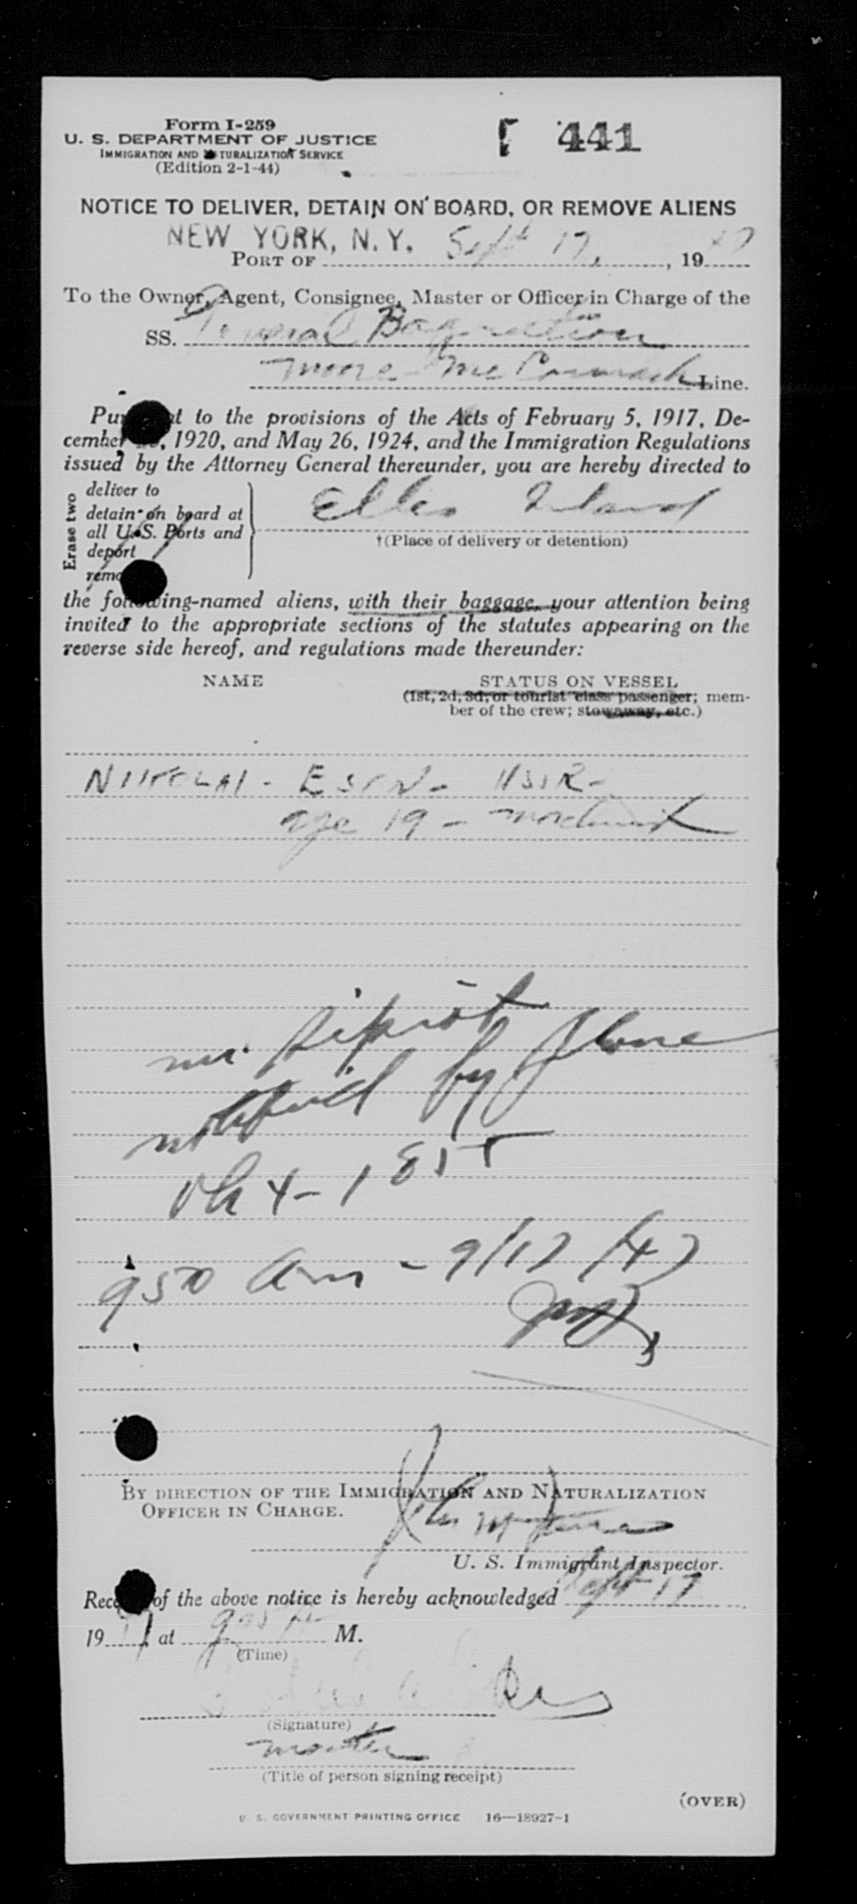 Form I-259
U. S. DEPARTMENT OF JUSTICE
IMMIGRATION AND NATURALIZATION SERVICE
(Edition 2-1-44)
441
NOTICE TO DELIVER, DETAIN ON BOARD, OR REMOVE ALIENS
NEW YORK, N. Y. Sept 17,
PORT OF , 19 47
To the Owner, Agent, Consignee, Master or Officer in Charge of the
SS. General Bagration
Moore McCormack Line.
Pursuant to the provisions of the Acts of February 5, 1917, De-
cember , 1920, and May 26, 1924, and the Immigration Regulations
issued by the Attorney General thereunder, you are hereby directed to
Erase two
deliver to
detain on board at
all U. S. Ports and
deport
remove
Ellis Island
†(Place of delivery or detention)
the following-named aliens, with their baggage, your attention being
invited to the appropriate sections of the statutes appearing on the
reverse side hereof, and regulations made thereunder:
NAME STATUS ON VESSEL
(1st, 2d, 3d, or tourist class passenger; mem-
ber of the crew; stowaway, etc.)
NIIKOLAI - - USSR -
age 19 -
Mr.
notified by phone
4-1855
950 am - 9/17/47
BY DIRECTION OF THE IMMIGRATION AND NATURALIZATION
OFFICER IN CHARGE.
John
U. S. Immigrant Inspector.
Receipt of the above notice is hereby acknowledged Sept 17
19 at M.
(Time)
(Signature)
master
(Title of person signing receipt)
(OVER)
U. S. GOVERNMENT PRINTING OFFICE 16—18927-1